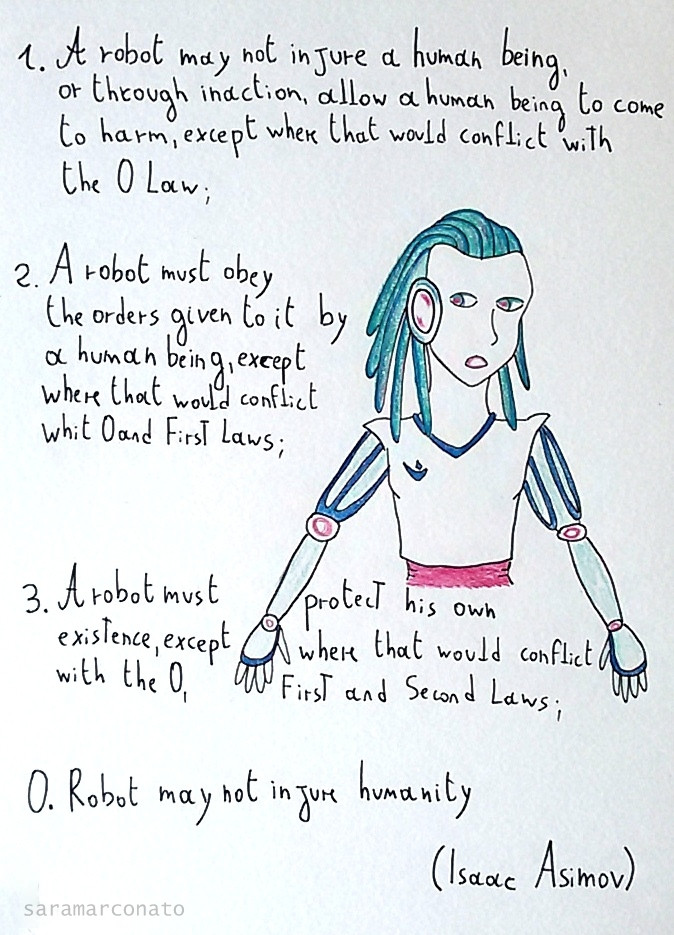 1. A robot may not injure a human being,
or through inaction, allow a human being to come
to harm, except where that would conflict with
the 0 Law;
2. A robot must obey
the orders given to it by
a human being, except
where that would conflict
whit 0 and First Laws;
3. A robot must protect his own
existence, except where that would conflict
with the 0, First and Second Laws;
0. Robot may not injure humanity
(Isaac Asimov)
saramarconato